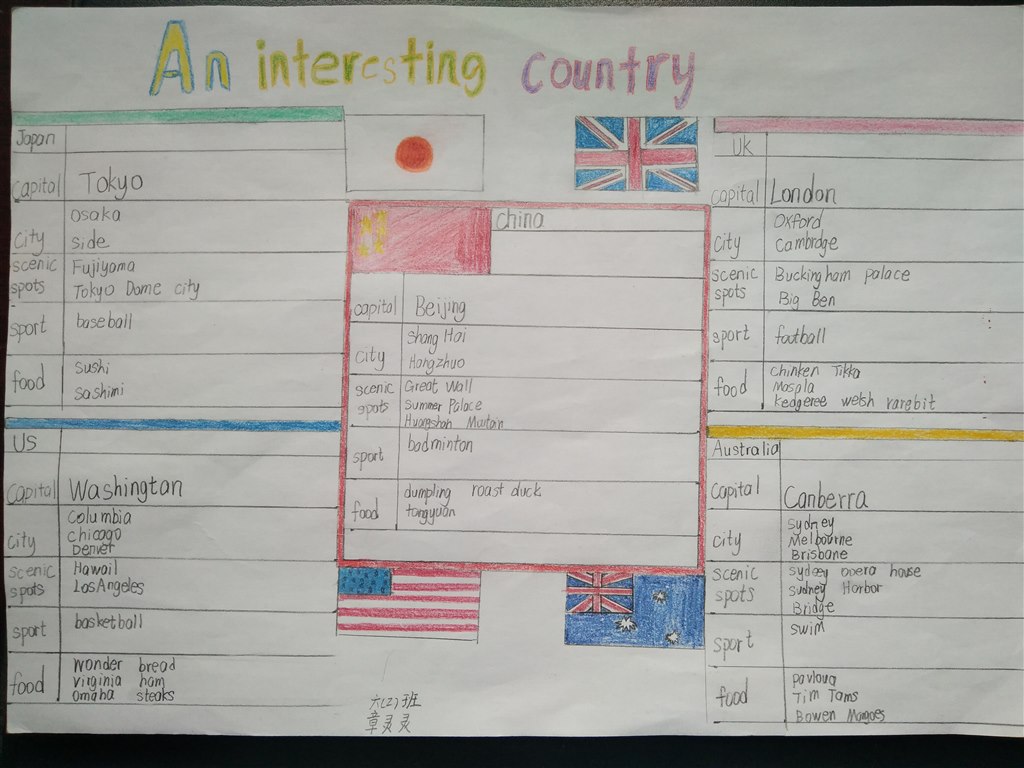 An interesting country
Japan
capital Tokyo
city Osaka
side
scenic spots Fujiyama
Tokyo Dome city
sport baseball
food sushi
sashimi
UK
capital London
city Oxford
Cambrdge
scenic spots Buckingham palace
Big Ben
sport football
food chinken Tikka
Masala
kedgeree welsh rarebit
china
capital Beijing
city Shang Hai
Hangzhuo
scenic spots Great Wall
Summer Palace
Huangshan
sport badminton
food dumpling roast duck
tangyuan
US
capital Washington
city Columbia
chicago
Denver
scenic spots Hawaii
LosAngeles
sport basketball
food Wonder bread
virginia ham
omaha steaks
Australia
capital Canberra
city sydney
Melbourne
Brisbane
scenic spots sydney opera house
sydney Harbor
Bridge
sport swim
food pavlova
Tim Tams
Bowen Mangoes
六(2)班
章灵灵